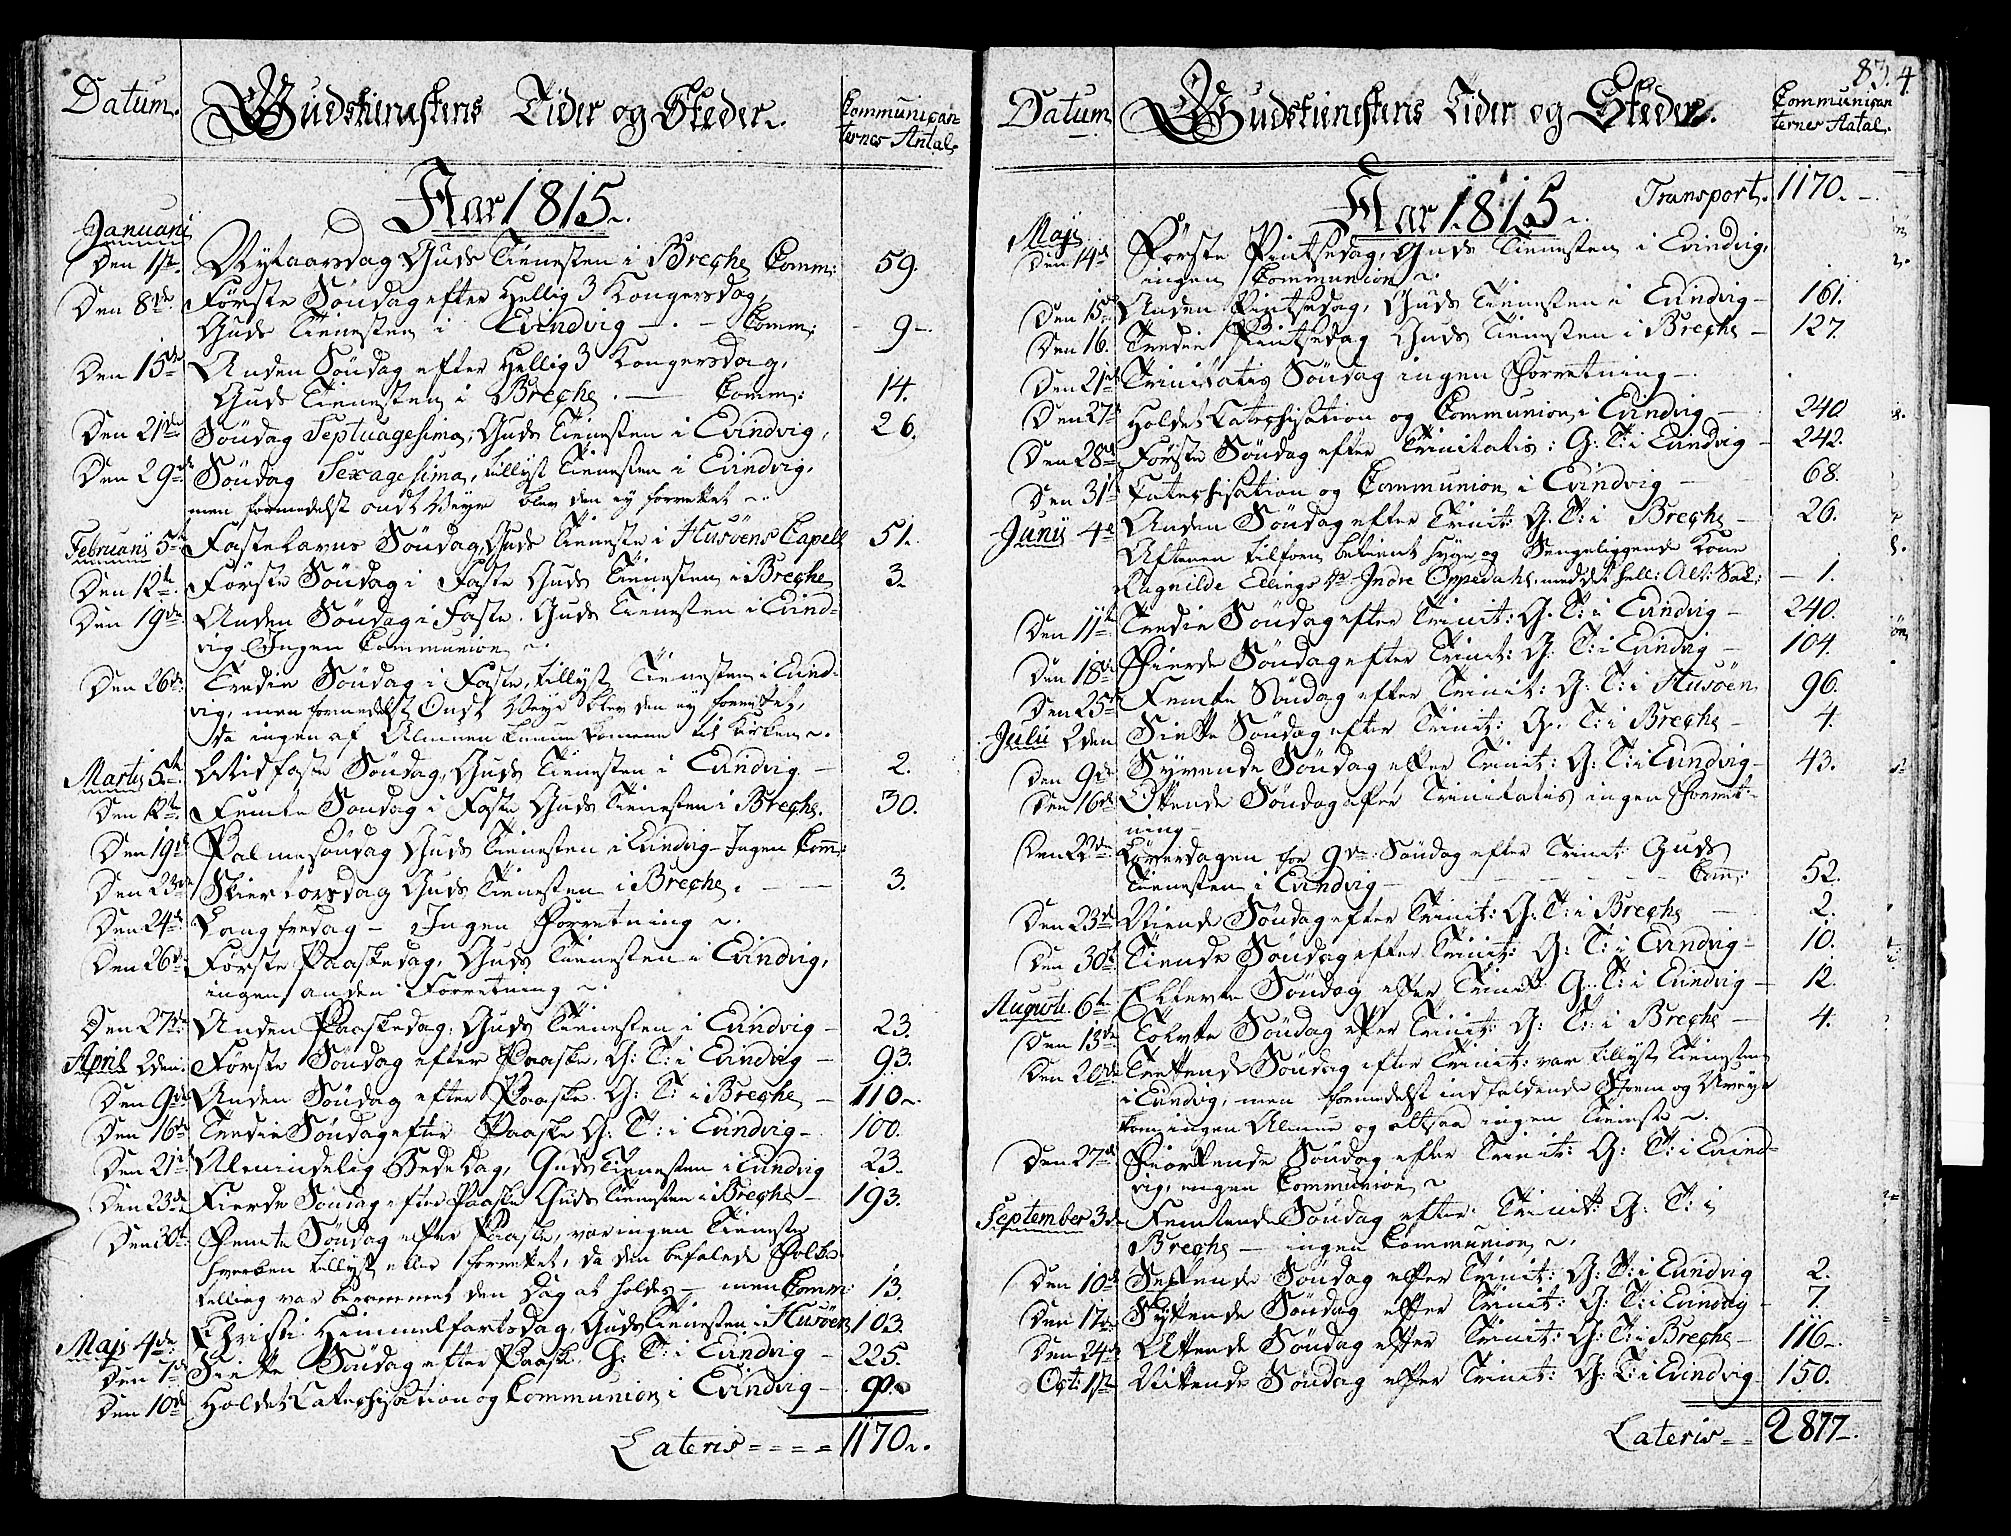 Datum.
Gudstienestens Tider og Steder.
Communican
ternes Antal.
Aar 1815.
Januarii
Den 1ste. Nytaarsdag Guds Tienesten i Breche Comm: 59.
Den 8de. Første Søndag efter Hellig 3 Kongersdag,
Guds Tienesten i Evindvig - . - Comm: 9.
Den 15de Anden Søndag efter Hellig 3 Kongersdag,
Guds Tienesten i Breche . — Comm: 14.
Den 21de Søndag Septuagesima, Guds Tienesten i Evindvig, 26.
Den 29de Søndag Sexagesima, tillyst Tienesten i Evindvig,
men formedelst ondt Veyr blev den ey forrettet ~
Februarii 5te Fastelavns Søndag, Guds Tieneste i Husøens Capell 51.
Den 12te. Første Søndag i Faste Guds Tienesten i Breche 3.
Den 19de Anden Søndag i Faste. Guds Tienesten i Evind-
vig Ingen Communion ~
Den 26de. Tredie Søndag i Faste, tillyst Tienesten i Evind-
vig, men formedelst Ondt Veyr blev den ey forrettet,
da ingen af Almuen kunne komme til Kirken ~.
Martii 5te. Midfaste Søndag, Guds Tienesten i Evindvig — 2.
Den 12te. Femte Søndag i Faste Guds Tienesten i Breche. 30.
Den 19de Palmesøndag Guds Tienesten i Evindvig - Ingen Com:
Den 23de Skiertorsdag Guds Tienesten i Breche. — — 3.
Den 24de Langfredag - Ingen Forretning ~.
Den 26de. Første Paaskedag, Guds Tienesten i Evindvig,
ingen anden Forretning ~.
Den 27de. Anden Paaskedag, Guds Tienesten i Evindvig — 23.
April 2den. Første Søndag efter Paaske, G: T: i Evindvig — 93.
Den 9de Anden Søndag efter Paaske. G: T: i Breche — 110.
Den 16de Tredie Søndag efter Paaske G: T: i Evindvig - 100.
Den 21de Almindelig Bededag, Guds Tienesten i Evindvig 23.
Den 23de Fierde Søndag efter Paaske Guds Tienesten i Breche — 193.
Den 30te. Femte Søndag efter Paaske, var ingen Tieneste
hverken tillyst eller forrettet, da den befalede Folke
telling var berammet den Dag at holdes — men Comm: 13.
Maji 4de. Christi Himmelfartsdag, Guds Tienesten i Husøen 103.
Den 7de Siette Søndag efter Paaske. G: T: i Evindvig — 225.
Den 10de Holdet Catechisation og Communion i Evindvig —
Lateris = = = = 1170.
83. 4
Datum
Gudstienestens Tider og Steder.
Communican
ternes Antal.
Aar 1815. Transport. 1170. -
Maji
Den 14de Første Pintsedag, Guds Tienesten i Evindvig,
ingen Communion ~.
Den 15de Anden Pintsedag, Guds Tienesten i Evindvig — 161.
Den 16. Tredie Pintsedag Guds Tienesten i Breche — 127.
Den 21de Trinitatis Søndag ingen Forretning —.
Den 27de Holdet Catechisation og Communion i Evindvig — 240
Den 28de Første Søndag efter Trinitatis: G: T: i Evindvig — 242.
Den 31te Catechisation og Communion i Evindvig — 68.
Junii 4de Anden Søndag efter Trinit: G: T: i Breche — 26.
Aftenen tilforn betient syge og Sengeliggende Kone
Ragnilde Ellings Dr. Indre Oppedahl, med det hell: Alt: Sak: — 1.
Den 11te Tredie Søndag efter Trinit: G: T: i Evindvig — 240.
Den 18de Fierde Søndag efter Trinit: G: T: i Evindvig — 104.
Den 25de Femte Søndag efter Trinit: G: T: i Husøen 96.
Julii 2den Siette Søndag efter Trinit: G: T: i Breche — 4.
Den 9de Syvende Søndag efter Trinit: G: T: i Evindvig — 43.
Den 16de Ottende Søndag efter Trinitatis ingen Forret-
ning —
Den 22de Løverdagen for 9de Søndag efter Trinit: Guds
Tienesten i Evindvig — — — Com: 52.
Den 23de Niende Søndag efter Trinit: G: T: i Breche — 2.
Den 30te Tiende Søndag efter Trinit: G: T: i Evindvig — 10.
Augusti 6te Ellevte Søndag efter Trinit: G. T: i Evindvig — 12.
Den 13de Tolvte Søndag efter Trinit: G: T: i Breche — 4.
Den 20de Trettende Søndag efter Trinit: var tillyst Tienesten
i Evindvig, men formedelst indfaldende Storm og Uveyr
kom ingen Almue og altsaa ingen Tieneste ~.
Den 27de Fiortende Søndag efter Trinit: G: T: i Evind-
vig, ingen Communion ~
September 3de Femtende Søndag efter Trinit: G: T: i
Breche — ingen Communion ~.
Den 10de Sextende Søndag efter Trinit: G: T: i Evindvig 2.
Den 17de Syttende Søndag efter Trinit: G: T: i Evindvig — 7.
Den 24de Attende Søndag efter Trinit: G: T: i Breche — 116.
Oct: 1ste Nittende Søndag efter Trinit: G: T: i Evindvig — 150.
Lateris = = 2877.